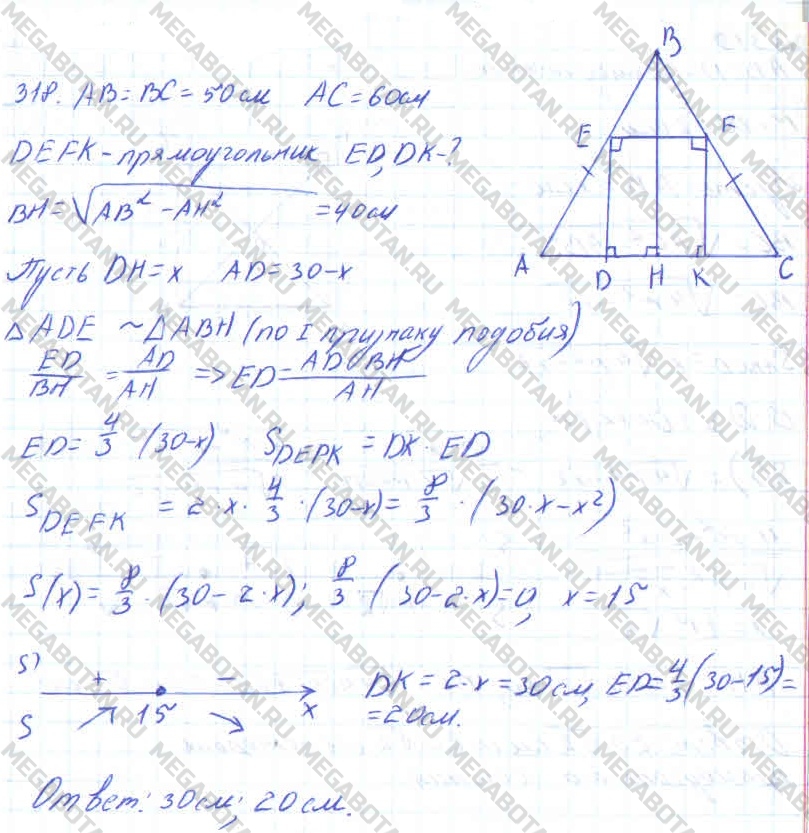 318. AB = BC = 50 см AC = 60 см
DEFK - прямоугольник ED, DK - ?
BH = √AB² - AH² = 40 см
Пусть DH = x AD = 30 - x
△ADE ~ △ABH (по I признаку подобия)
ED/BH = AD/AH => ED = AD · BH/AH
ED = 4/3 (30-x) S DEFK = DK · ED
S DEFK = 2 · x · 4/3 · (30-x) = 8/3 · (30 · x - x²)
S'(x) = 8/3 · (30 - 2 · x); 8/3 · (30 - 2 · x) = 0, x = 15
S' + -
S 15 x
DK = 2 · x = 30 см, ED = 4/3 (30-15) =
= 20 см.
Ответ: 30 см; 20 см.
B
E F
A D H K C
MEGABOTAN.RU